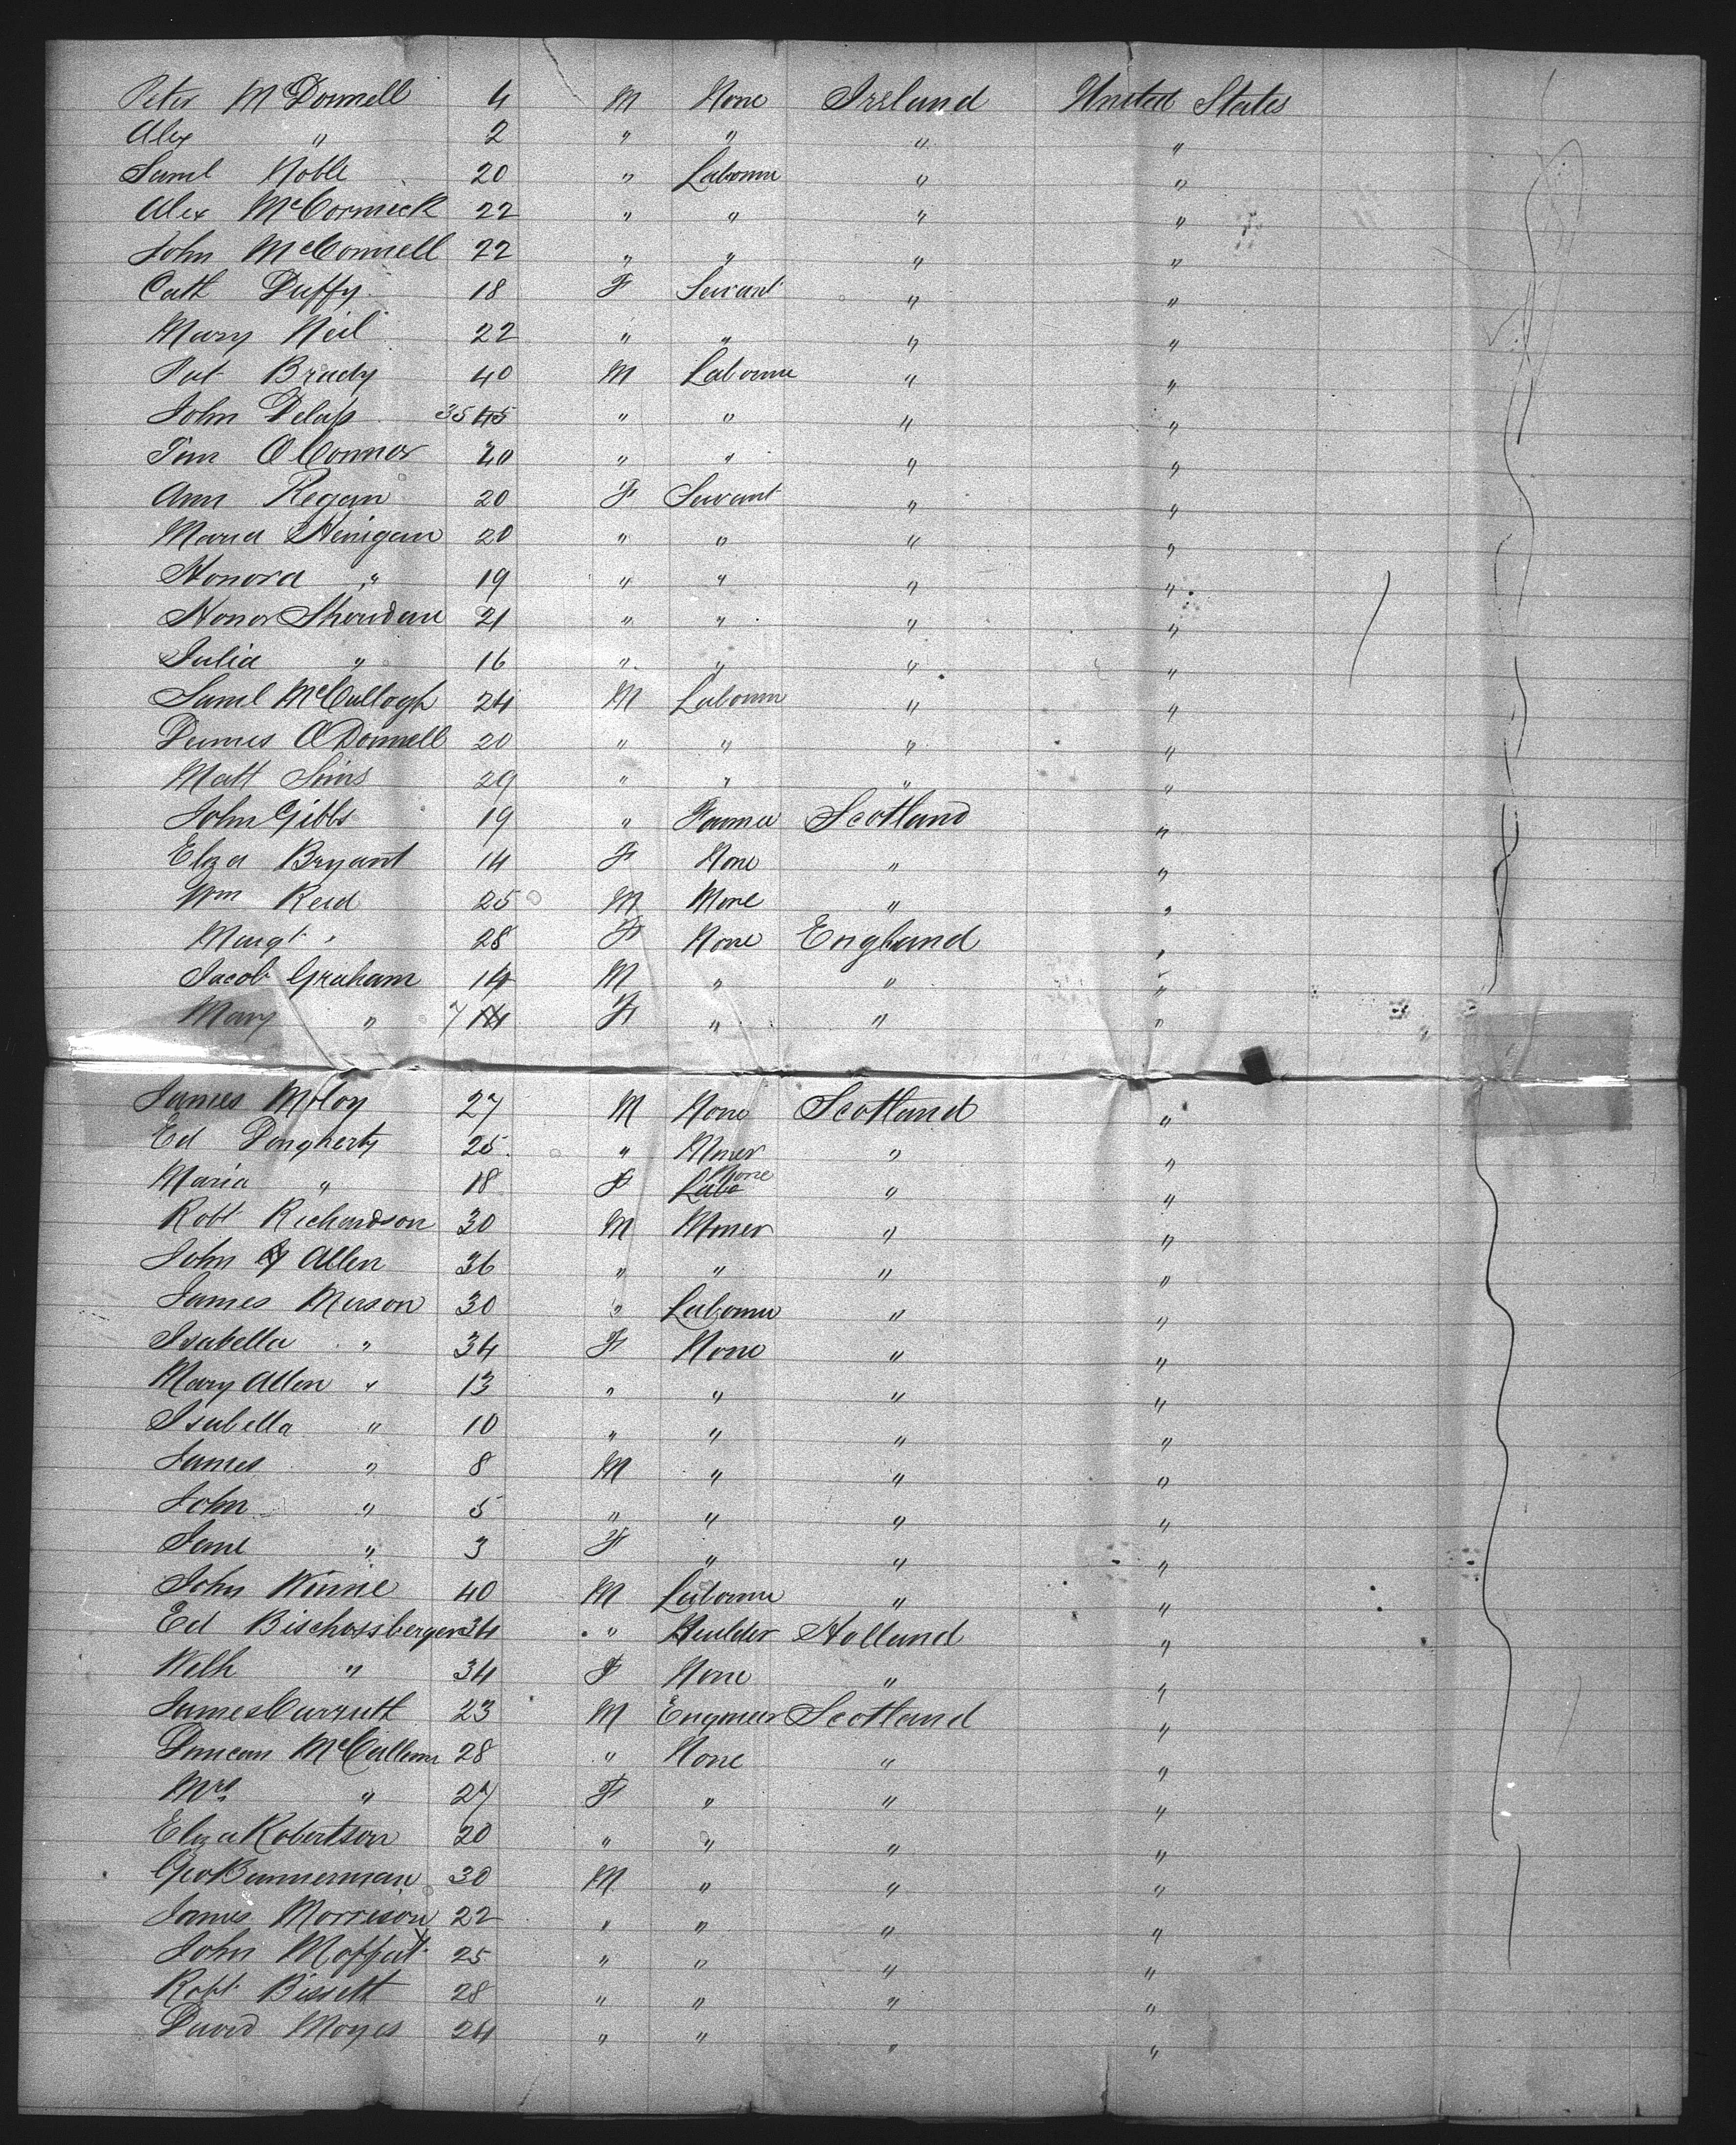 Peter McDonnell 4 M None Ireland United States
Alex " 2 " " " "
Saml Noble 20 " Labourer " "
Alex McCormick 22 " " " "
John McConnell 22 " " " "
Cath Duffy 18 F Servant " "
Mary Neil 22 " " " "
Pat Brady 40 M Labourer " "
John Delap 35 45 " " " "
Tim O'Connor 20 " " " "
Ann Regan 20 F Servant " "
Maria Henigan 20 " " " "
Honora " 19 " " " "
Honor Sheridan 21 " " " "
Julia " 16 " " " "
Saml McCullogh 24 M Labourer " "
James O'Donnell 20 " " " "
Matt Sims 29 " " " "
John Gibbs 19 " Farmer Scotland "
Eliza Bryant 14 F None " "
Wm Reid 25 M None " "
Margt " 28 F None England "
Jacob Graham 14 M " " "
Mary " 7 14 F " " "
James McLoy 27 M None Scotland "
Ed Dougherty 25 " Miner " "
Maria " 18 F Labo None " "
Robt Richardson 30 M Miner " "
John Allen 36 " " " "
James Merson 30 " Labourer " "
Isabella " 34 F None " "
Mary Allen " 13 " " " "
Isabella " 10 " " " "
James " 8 M " " "
John " 5 " " " "
Jane " 3 F " " "
John Winnie 40 M Labourer " "
Ed Bischossberger 34 " Builder Holland "
Wilh " 34 F None " "
James Carruth 23 M Engineer Scotland "
Duncan McCallum 28 " None " "
Mrs " 27 F " " "
Eliza Robertson 20 " " " "
Geo Bannerman 30 M " " "
James Morrison 22 " " " "
John Moffat 25 " " " "
Robt Bissett 28 " " " "
David Moyes 24 " " " "